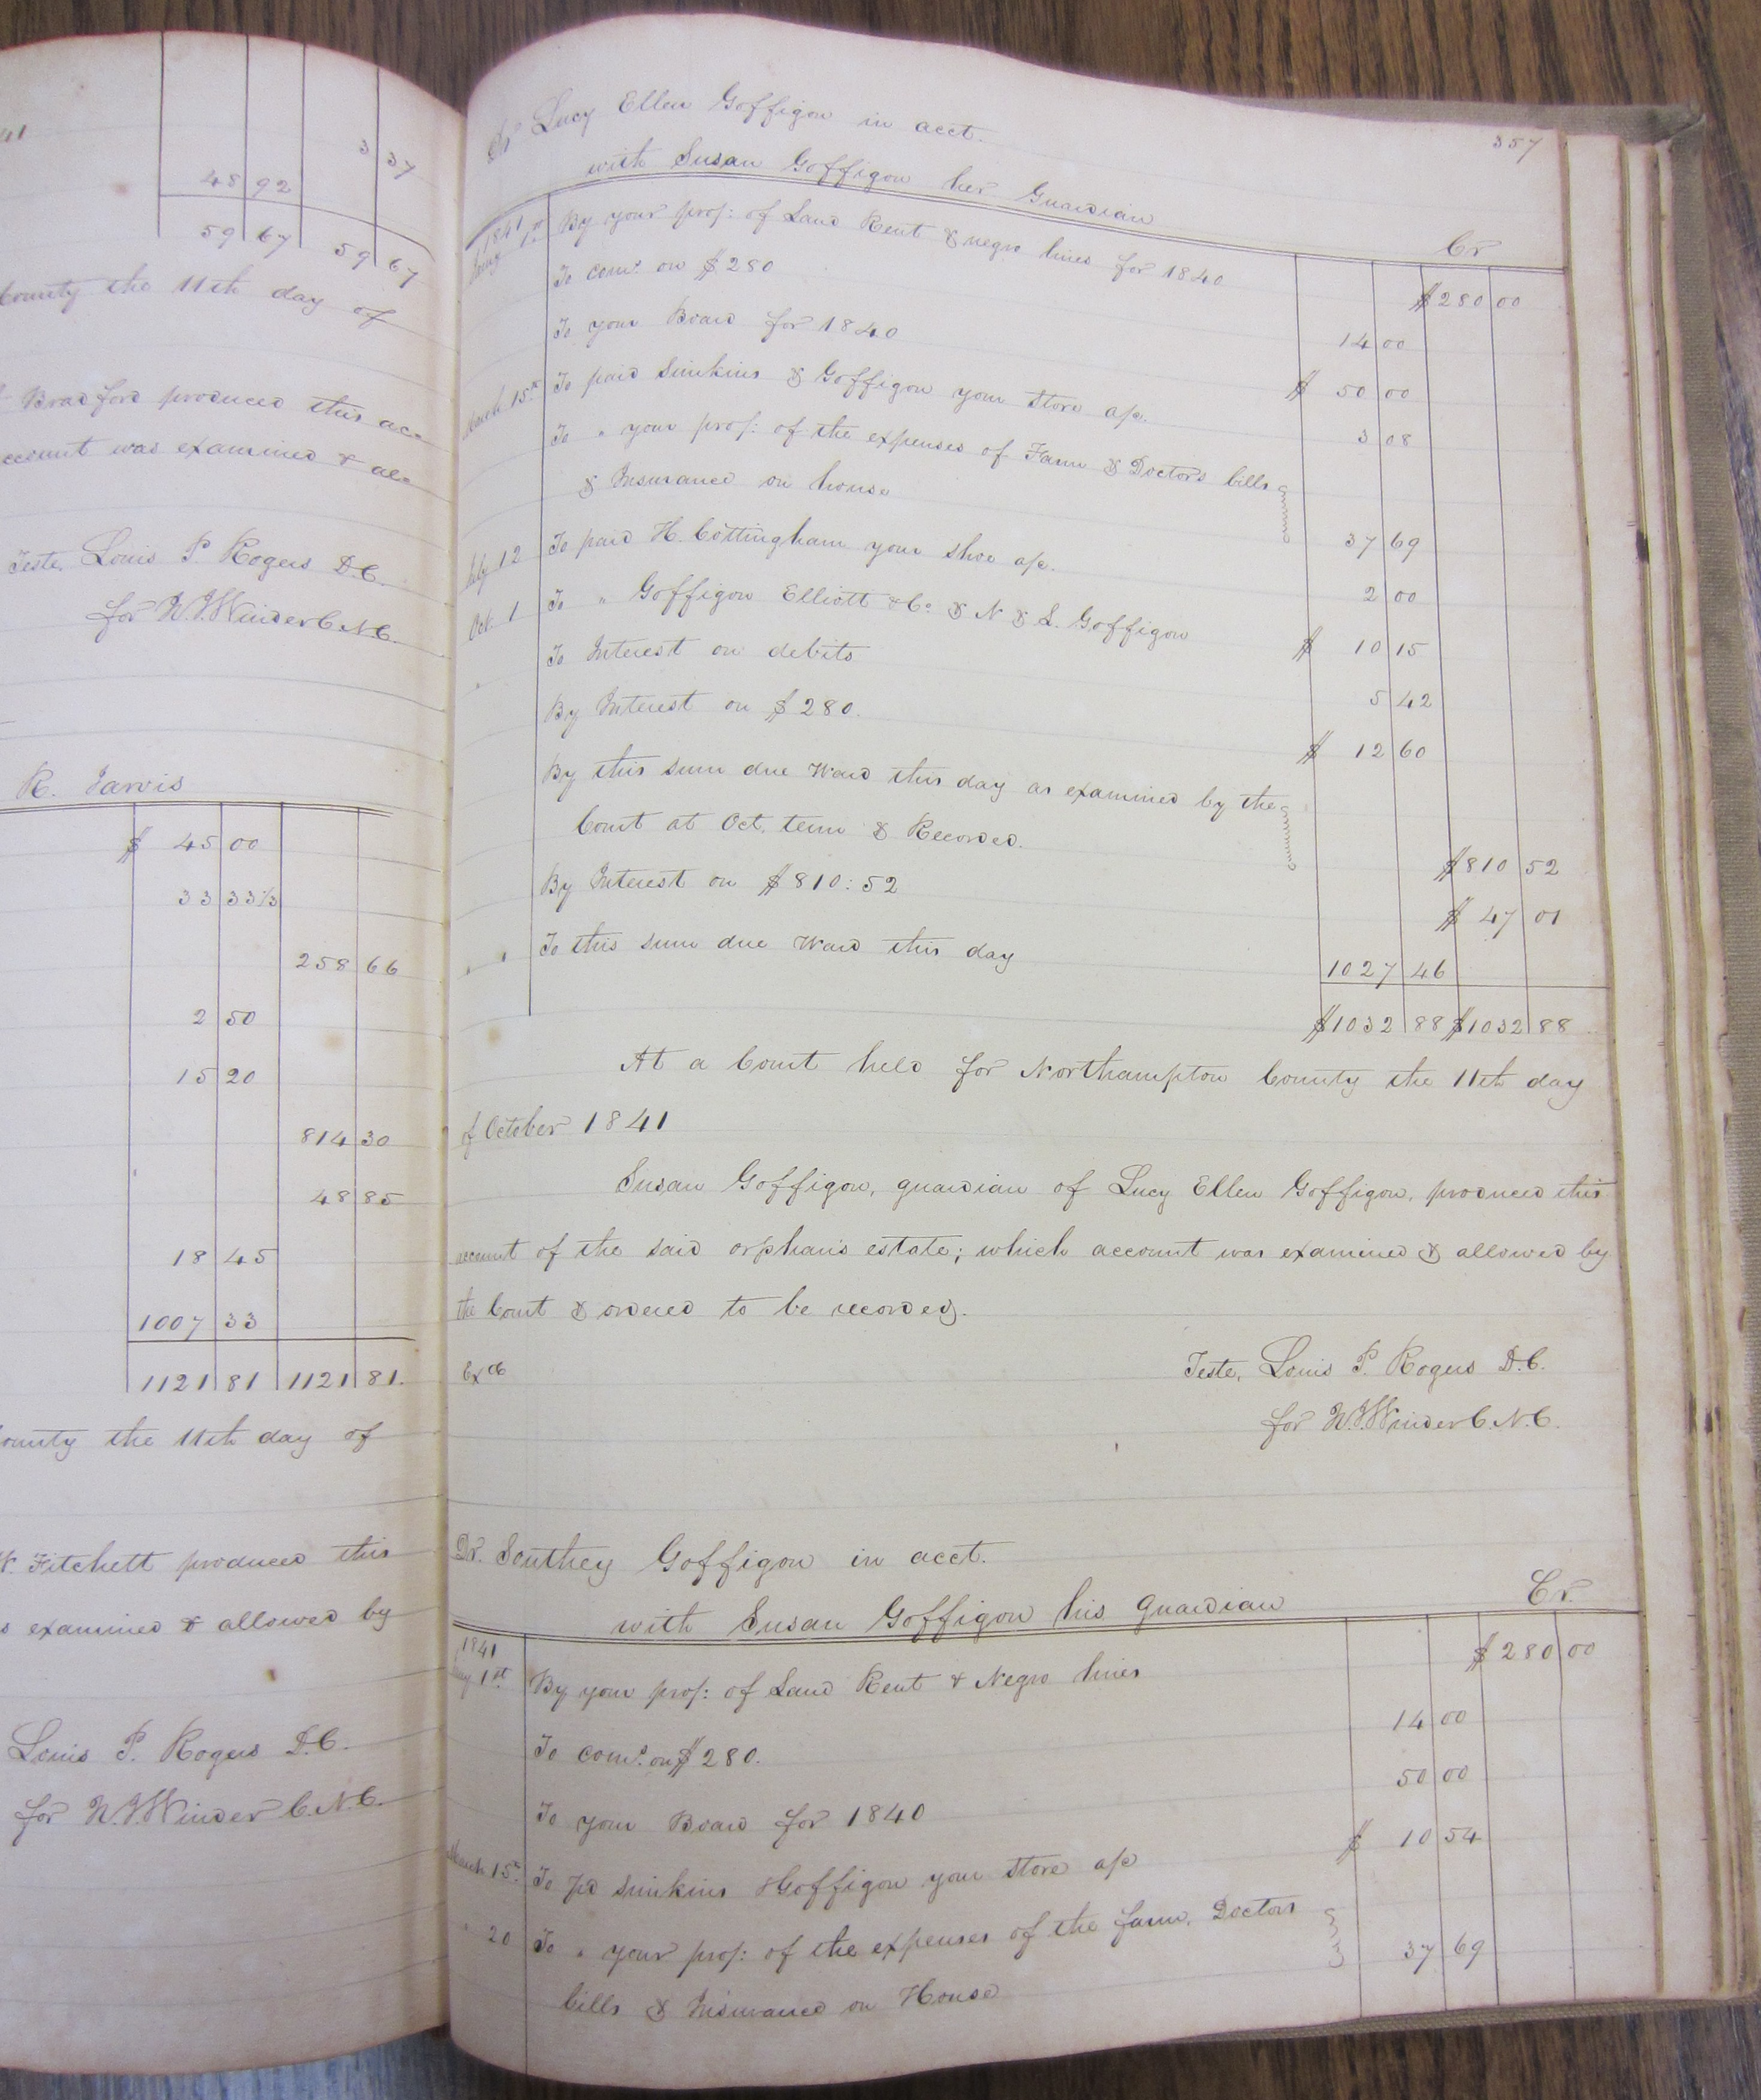 41
3 37
48 92
59 67 59 67
County the 11th day of
Bradford produced this ac=
ccount was examined & al=
Teste, Louis P. Rogers D.C.
for N.J.Winder C.N.C.
R. Jarvis
$ 45 00
33 33⅓
258 66
2 50
15 20
814 30
48 85
18 45
1007 33
1121 81 1121 81.
ounty the 11th day of
W. Fitchett produced this
s examined & allowed by
Louis P. Rogers D.C.
for N.J.Winder C.N.C.
357
Dr Lucy Ellen Goffigon in acct.
with Susan Goffigon her Guardian
Cr
1841
1st By your prop: of Land Rent & negro hires for 1840 $280 00
To coms. on $280 14 00
To your Board for 1840 $ 50 00
March 15th To paid Simkins & Goffigon your store a/c. 3 08
To " your prop: of the expenses of Farm & Doctors bills
& Insurance on house 37 69
July 12 To paid H. Cottingham your shoe a/c. 2 00
Oct. 1 To " Goffigon Elliott & Co & N & S. Goffigon $ 10 15
" To Interest on debits 5 42
By Interest on $280. $ 12 60
By this sum due Ward this day as examined by the
Court at Oct. term & Recorded. $810 52
By Interest on $810:52 $ 47 01
" " To this sum due Ward this day 1027 46
$1032 88 $1032 88
At a Court held for Northampton County the 11th day
of October 1841
Susan Goffigon, guardian of Lucy Ellen Goffigon, produced this
account of the said orphan's estate; which account was examined & allowed by
the Court & ordered to be recorded.
Teste, Louis P. Rogers D.C.
for N.J.Winder C.N.C.
Dr. Southey Goffigon in acct.
with Susan Goffigon his guardian
Cr.
1841
1st By your prop: of Land Rent & Negro hires $280 00
To coms. on $280. 14 00
To your Board for 1840 50 00
March 15th To pd Simkins & Goffigon your store a/c $ 10 54
" 20 To " your prop: of the expenses of the farm, Doctors
bills & Insurance on House 37 69